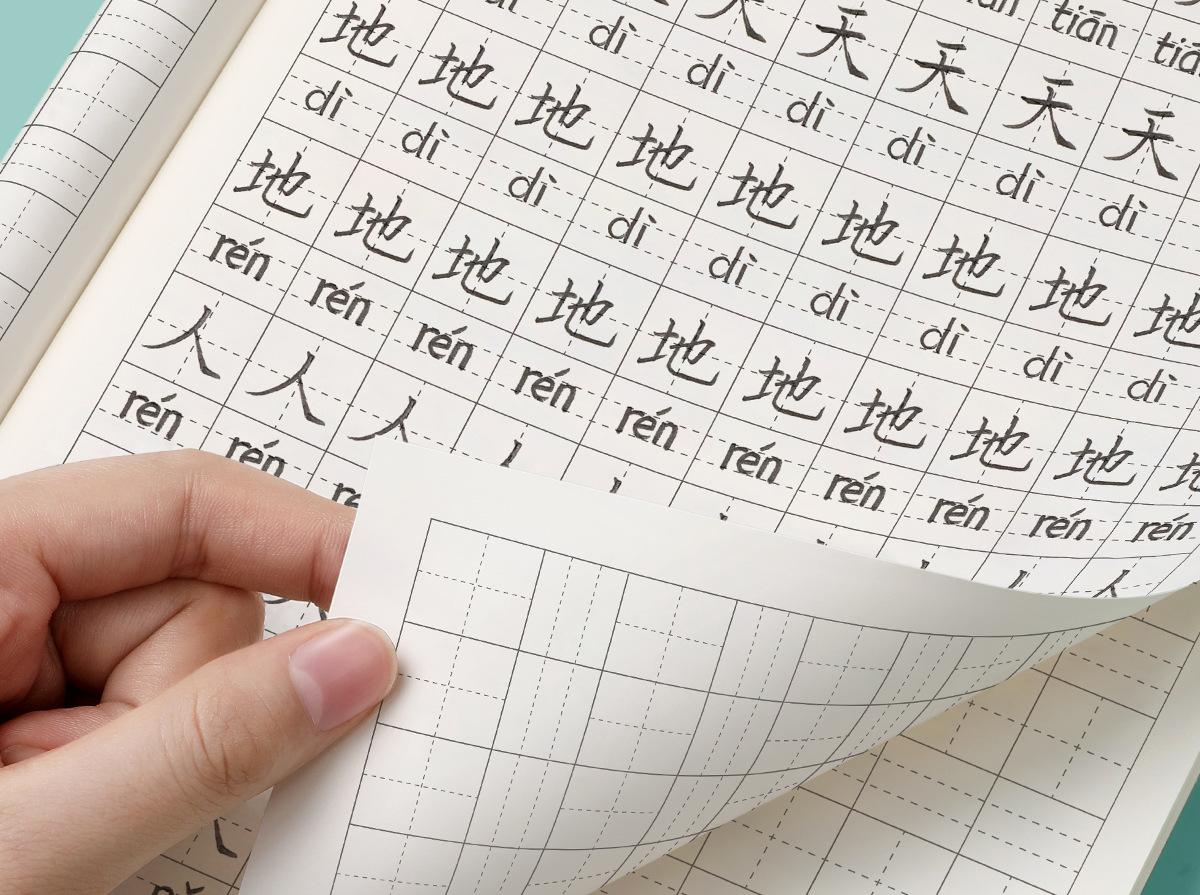 tiān
天 天 天 天
dì dì dì dì dì dì
地 地 地 地 地 地 地 地 地
dì dì dì dì dì dì dì dì dì
地 地 地 地 地 地 地 地 地
rén rén rén rén rén rén rén rén rén rén
人 人 人
rén rén